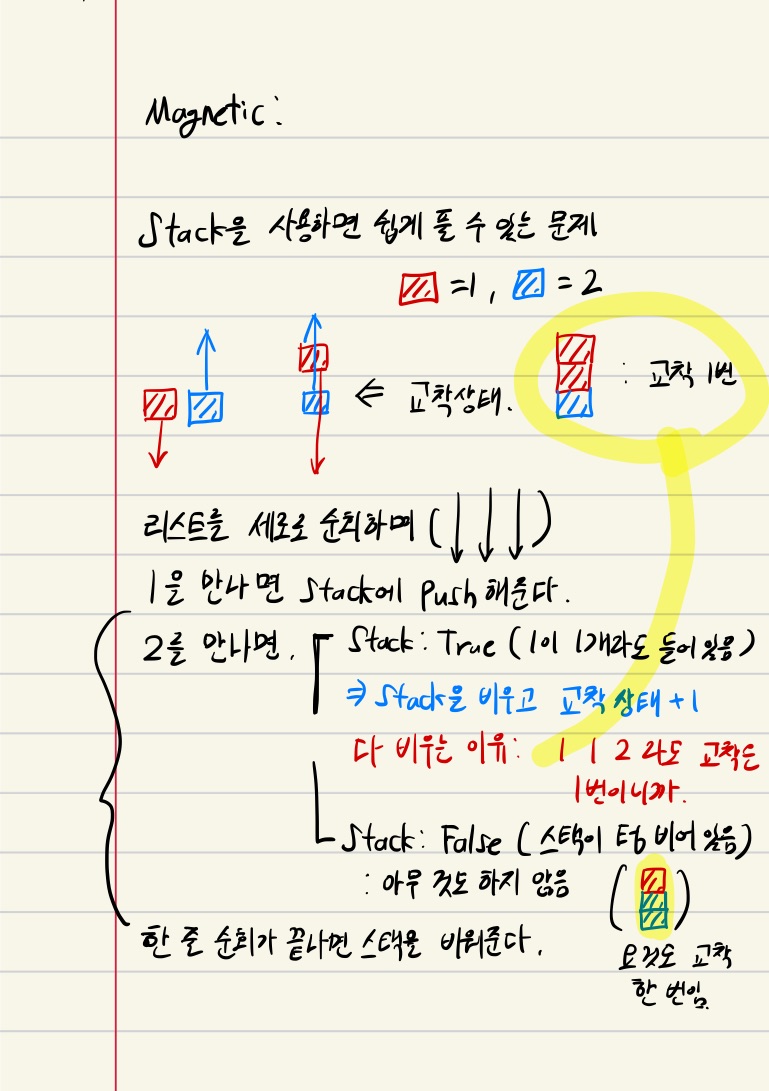 Magnetic:
Stack을 사용하면 쉽게 풀 수 있는 문제
=1, =2
⇐ 교착상태.
: 교착 1번
리스트를 세로로 순회하며 (↓↓↓)
1을 만나면 Stack에 push해준다.
2를 만나면. Stack: True (1이 1개라도 들어있음)
⇒ Stack을 비우고 교착 상태 +1
다 비우는 이유: 1 1 2 라도 교착은
1번이니까.
Stack: False (스택이 텅 비어 있음)
: 아무 것도 하지 않음 ( )
한 줄 순회가 끝나면 스택을 비워준다.
요것도 교착
한 번임.